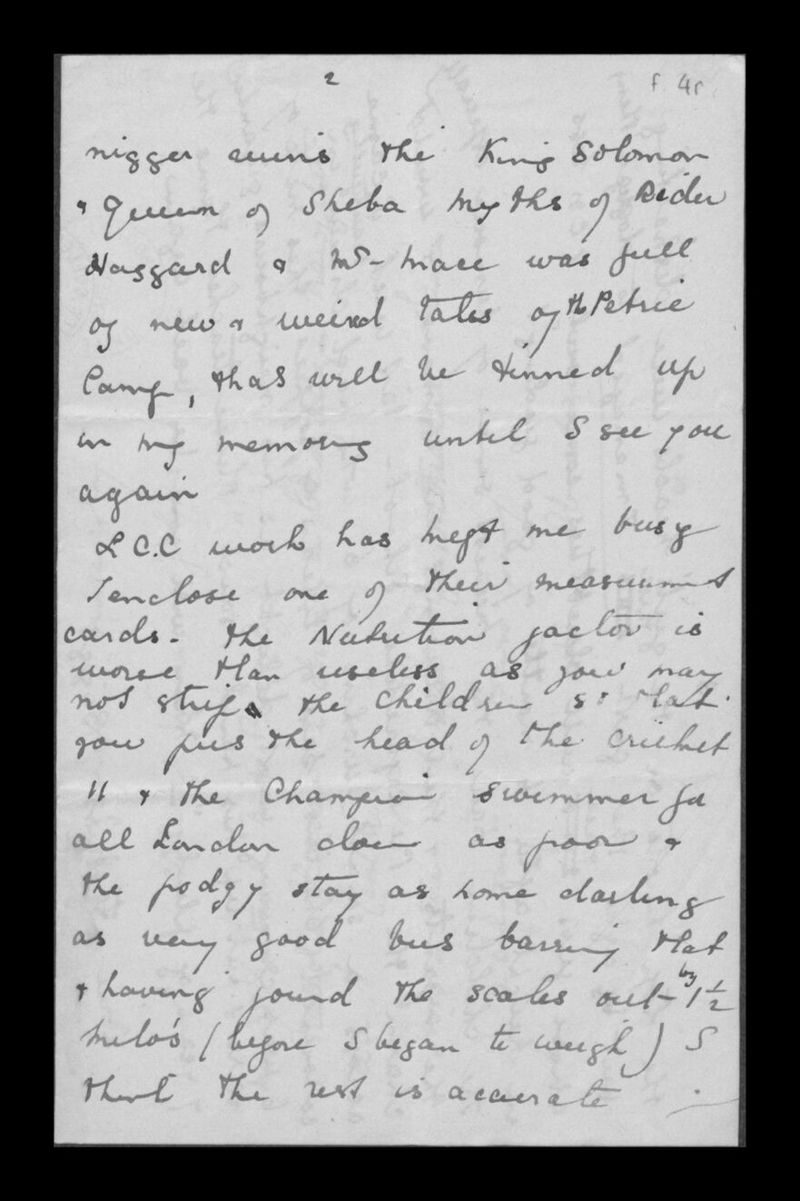 2
f. 4r.
nigger ruins the King Solomon
& Queen of Sheba myths of Rider
Haggard & Mr- Mace was full
of new & weird tales of th Petrie
Camp, that will be tinned up
in my memory until I see you
again
L C.C work has kept me busy
I enclose one of their measurement
cards - the Nutrition factor is
worse than useless as you may
not strip the children so that
you put the head of the cricket
11 & the Champion swimmer for
all London down as poor &
the podgy stay at home darling
as very good but barring that
& having found the scales out by 1 1/2
kilo's (before I began to weigh) I
think the rest is accurate -